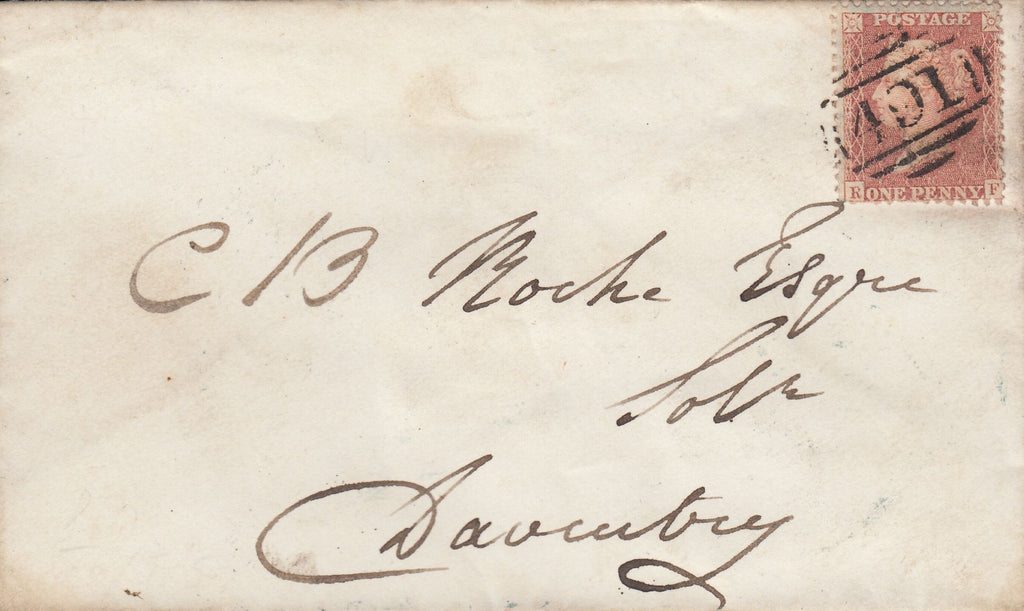 POSTAGE
401
R ONE PENNY F
C B Roche Esqre
Solr
Daventry